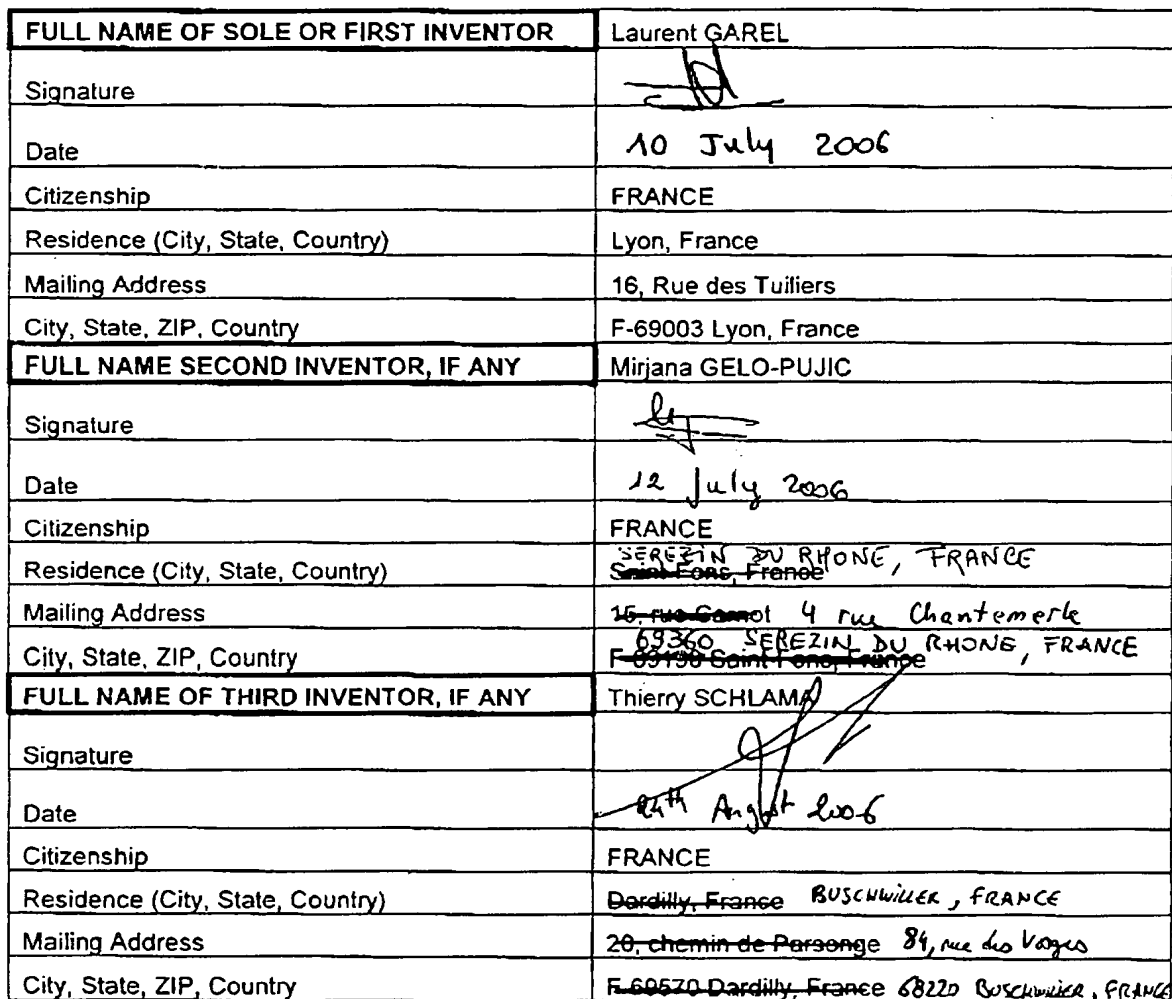 FULL NAME OF SOLE OR FIRST INVENTOR Laurent GAREL
Signature
Date 10 July 2006
Citizenship FRANCE
Residence (City, State, Country) Lyon, France
Mailing Address 16, Rue des Tuiliers
City, State, ZIP, Country F-69003 Lyon, France
FULL NAME SECOND INVENTOR, IF ANY Mirjana GELO-PUJIC
Signature
Date 12 July 2006
Citizenship FRANCE
SEREZIN DU RHONE, FRANCE
Residence (City, State, Country) Saint Fons, France
Mailing Address 15, rue Carnot 4 rue Chantemerle
69360 SEREZIN DU RHONE, FRANCE
City, State, ZIP, Country F-69190 Saint Fons, France
FULL NAME OF THIRD INVENTOR, IF ANY Thierry SCHLAMA
Signature
Date 24th August 2006
Citizenship FRANCE
Residence (City, State, Country) Dardilly, France BUSCHWILLER, FRANCE
Mailing Address 20, chemin de Parsonge 84, rue des Vosges
City, State, ZIP, Country F-69570 Dardilly, France 68220 BUSCHWILLER, FRANCE